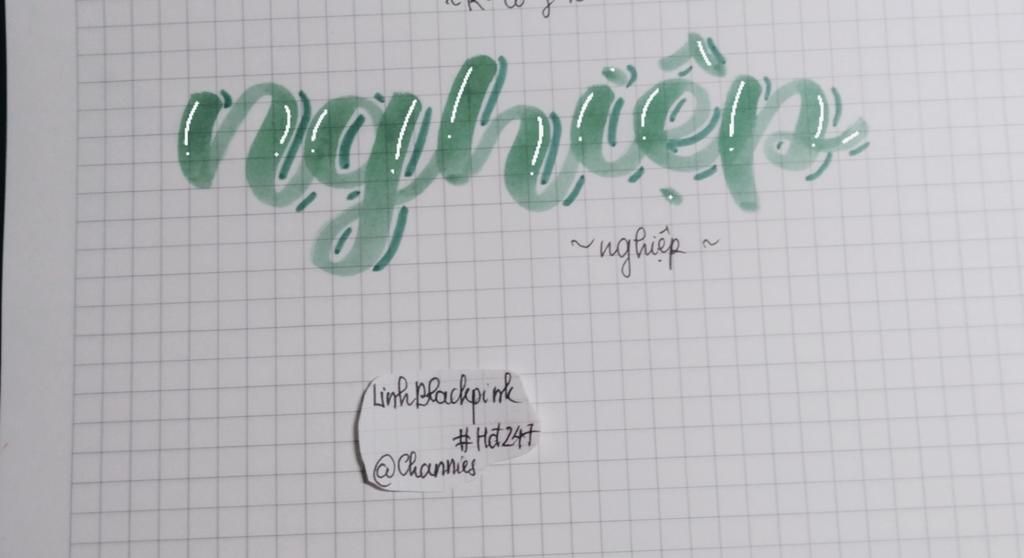 nghiệp
~ nghiệp ~
LinhBlackpink
#Hđ247
@Channies